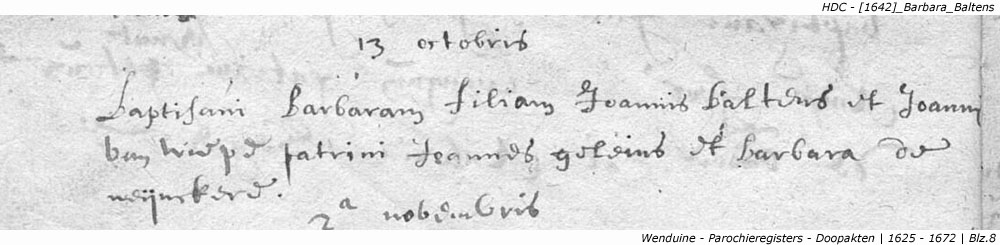 HDC - [1642]_Barbara_Baltens
13 octobris
Baptisavi Barbaram filiam Joannis Baltens et Joann
van wiepe patrini Joannes geleins et barbara de
neijnckere.
2a novembris
Wenduine - Parochieregisters - Doopakten | 1625 - 1672 | Blz.8